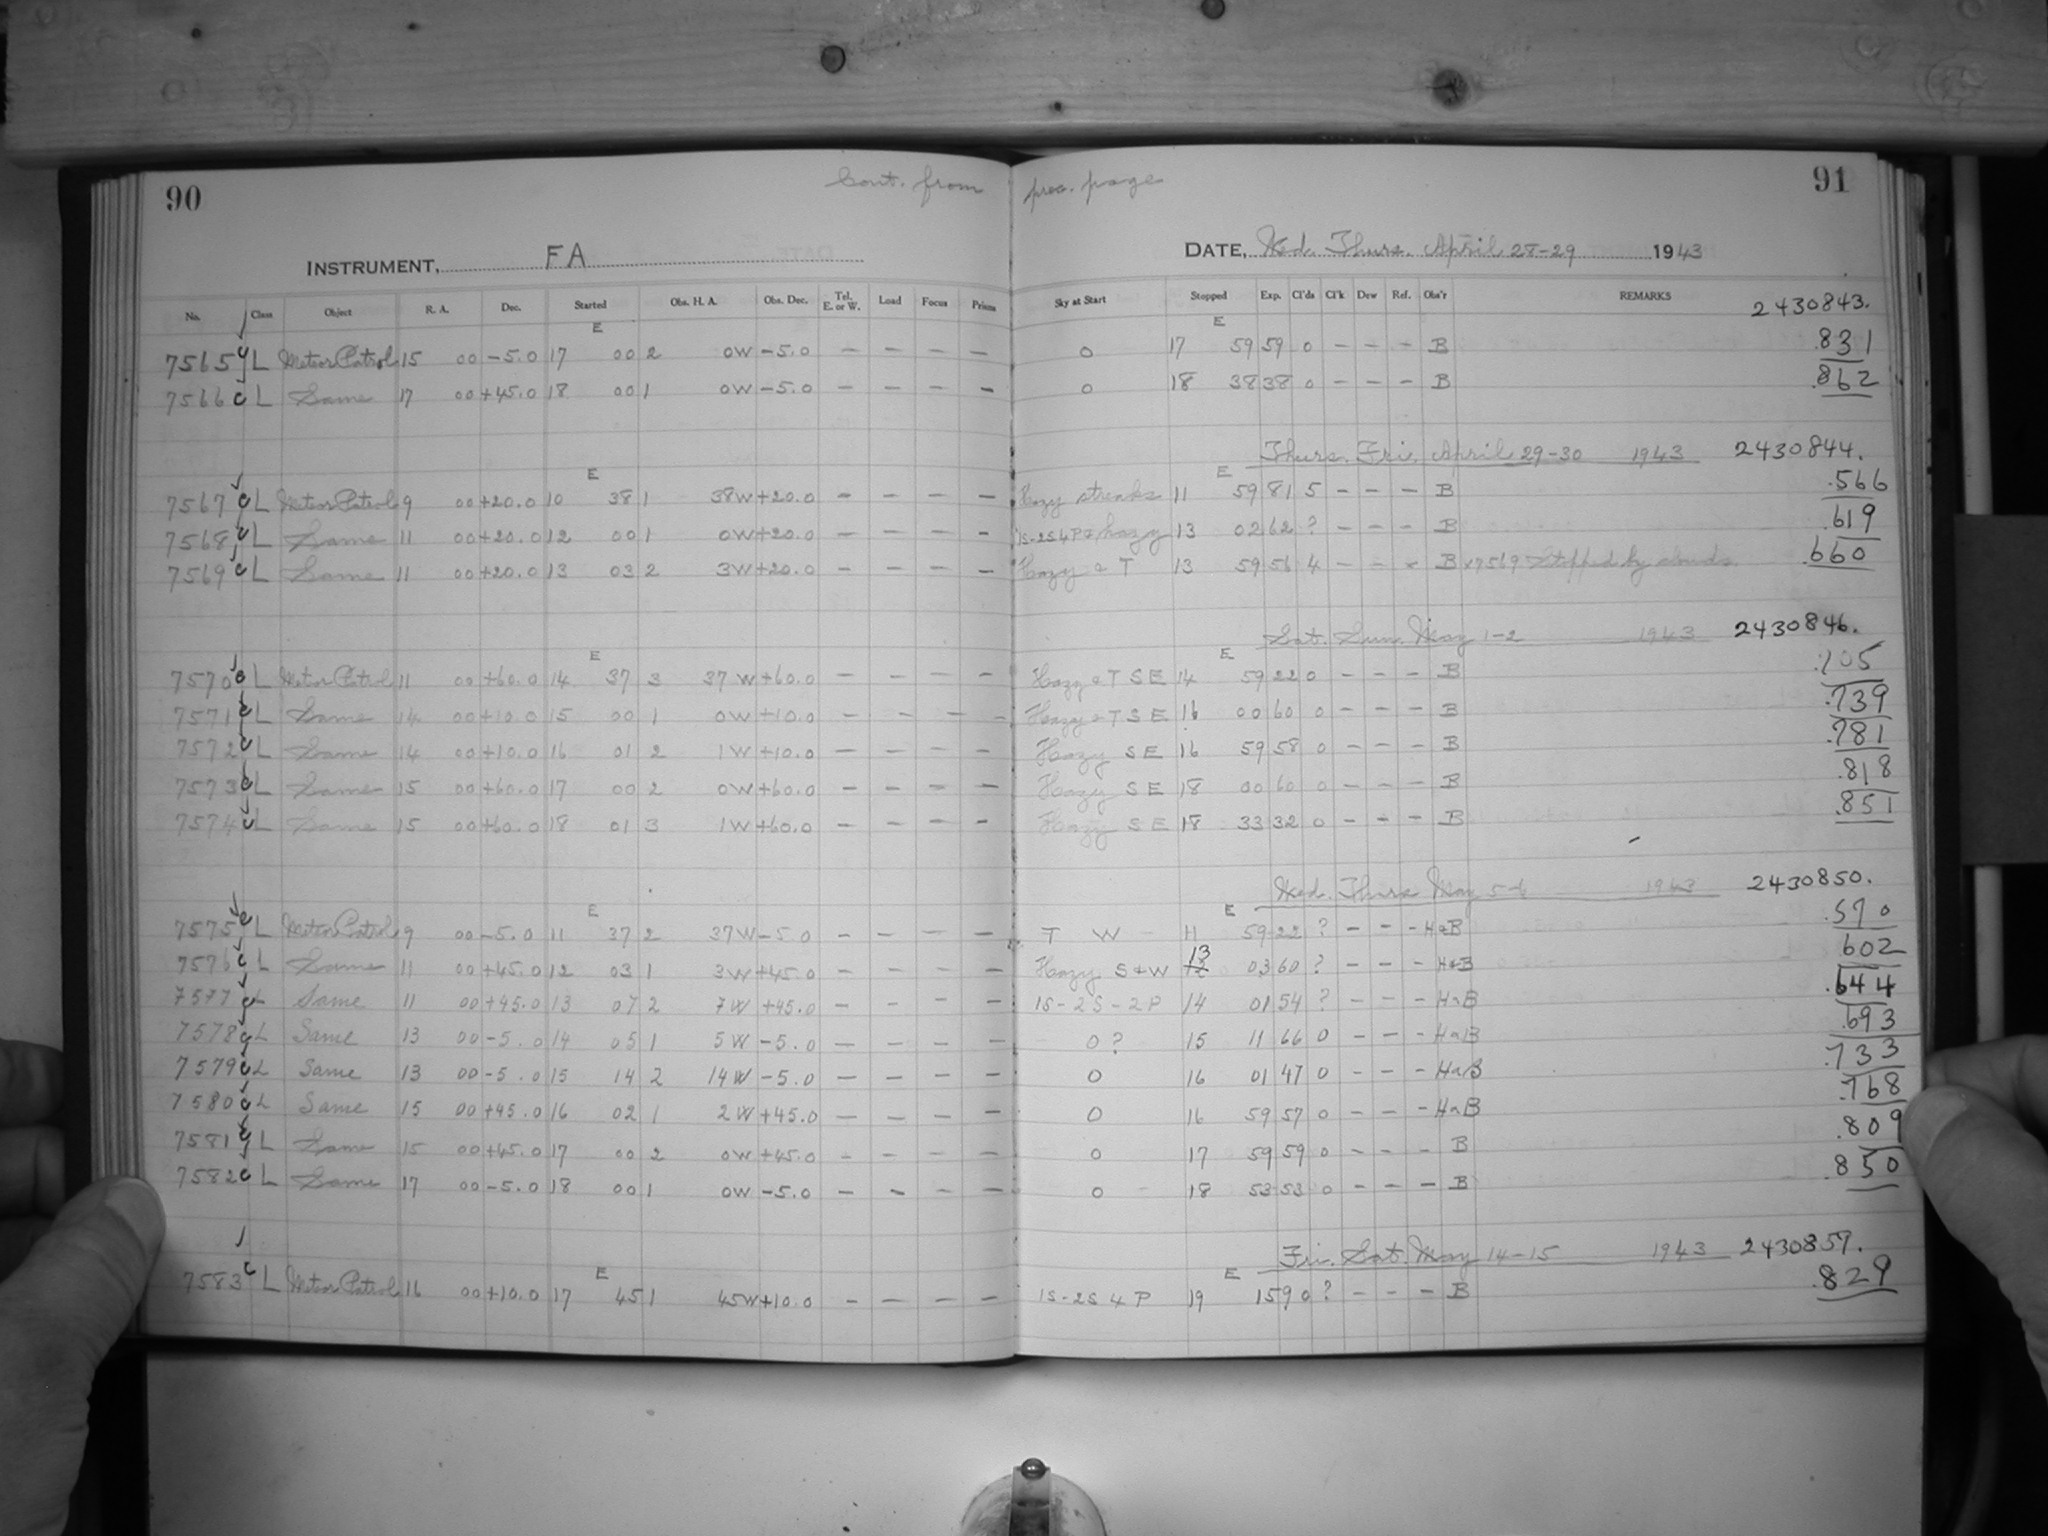 90 Cont. from prec. page 91
INSTRUMENT, FA DATE, Wed. Thurs. April 28-29 1943
No. Class Object R. A. Dec. Started Obs. H. A. Obs. Dec. Tel. E. or W. Load Focus Prisms Sky at Start Stopped Exp. Cl'ds Cl'k Dew Ref. Obs'r REMARKS 2430843.
E E
7565 c L Meteor Patrol 15 00 -5.0 17 00 2 0W -5.0 - - - - 0 17 59 59 0 - - - B .831
7566 c L Same 17 00 +45.0 18 00 1 0W -5.0 - - - - 0 18 38 38 0 - - - B .862
Thurs. Fri. April 29-30 1943 2430844.
E E
7567 c L Meteor Patrol 9 00 +20.0 10 38 1 38W +20.0 - - - - Hazy streaks 11 59 81 5 - - - B .566
7568 c L Same 11 00 +20.0 12 00 1 0W +20.0 - - - - 1S-2S4P & hazy 13 02 62 ? - - - B .619
7569 c L Same 11 00 +20.0 13 03 2 3W +20.0 - - - - Hazy & T 13 59 56 4 - - - B 7569 Stopped by clouds. .660
Sat. Sun. May 1-2 1943 2430846.
E E
7570 c L Meteor Patrol 11 00 +60.0 14 37 3 37W +60.0 - - - - Hazy & T S E 14 59 22 0 - - - B .705
7571 c L Same 14 00 +10.0 15 00 1 0W +10.0 - - - - Hazy & T S E 16 00 60 0 - - - B .739
7572 c L Same 14 00 +10.0 16 01 2 1W +10.0 - - - - Hazy S E 16 59 58 0 - - - B .781
7573 c L Same 15 00 +60.0 17 00 2 0W +60.0 - - - - Hazy S E 18 00 60 0 - - - B .818
7574 c L Same 15 00 +60.0 18 01 3 1W +60.0 - - - - Hazy S E 18 33 32 0 - - - B .851
Wed. Thurs May 5-6 1943 2430850.
E E
7575 c L Meteor Patrol 9 00 -5.0 11 37 2 37W -5.0 - - - - T W 11 59 22 ? - - - H&B .570
7576 c L Same 11 00 +45.0 12 03 1 3W +45.0 - - - - Hazy S+W 13 03 60 ? - - - H&B 602
7577 c L Same 11 00 +45.0 13 07 2 7W +45.0 - - - - 1S-2S-2P 14 01 54 ? - - - H&B .644
7578 c L Same 13 00 -5.0 14 05 1 5W -5.0 - - - - 0? 15 11 66 0 - - - H&B .693
7579 c L Same 13 00 -5.0 15 14 2 14W -5.0 - - - - 0 16 01 47 0 - - - H&B .733
7580 c L Same 15 00 +45.0 16 02 1 2W +45.0 - - - - 0 16 59 57 0 - - - H&B .768
7581 c L Same 15 00 +45.0 17 00 2 0W +45.0 - - - - 0 17 59 59 0 - - - B .809
7582 c L Same 17 00 -5.0 18 00 1 0W -5.0 - - - - 0 18 53 53 0 - - - B .850
Fri. Sat. May 14-15 1943 2430857.
E E
7583 c L Meteor Patrol 16 00 +10.0 17 45 1 45W +10.0 - - - - 1S-2S4P 19 15 90 ? - - - B .829